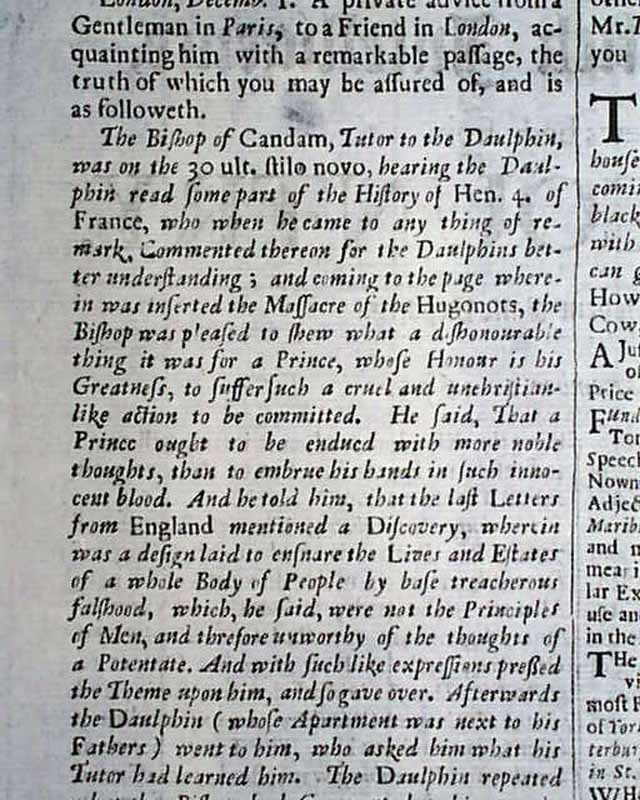 London, Decemb. 1. A private advice from a
Gentleman in Paris, to a Friend in London, ac-
quainting him with a remarkable paſſage, the
truth of which you may be aſſured of, and is
as followeth.
The Biſhop of Candam, Tutor to the Daulphin,
was on the 30 ult. ſtilo novo, hearing the Daul-
phin read ſome part of the Hiſtory of Hen. 4. of
France, who when he came to any thing of re-
mark, Commented thereon for the Daulphins bet-
ter underſtanding; and coming to the page where-
in was inſerted the Maſſacre of the Hugonots, the
Biſhop was pleaſed to ſhew what a diſhonourable
thing it was for a Prince, whoſe Honour is his
Greatneſs, to ſuffer ſuch a cruel and unchriſtian-
like action to be committed. He ſaid, That a
Prince ought to be endued with more noble
thoughts, than to embrue his hands in ſuch inno-
cent blood. And he told him, that the laſt Letters
from England mentioned a Diſcovery, wherein
was a deſign laid to enſnare the Lives and Eſtates
of a whole Body of People by baſe treacherous
falſhood, which, he ſaid, were not the Principles
of Men, and threfore unworthy of the thoughts of
a Potentate. And with ſuch like expreſſions preſſed
the Theme upon him, and ſo gave over. Afterwards
the Daulphin (whoſe Apartment was next to his
Fathers) went to him, who asked him what his
Tutor had learned him. The Daulphin repeated
Mr.
you
T
houſe
comi
black
with
can
How
Cow
A Juſ
of
Price
Fund
Tor
Speech
Nown
Adjec
Marib
and
mea
lar Ex
uſe an
in the
THe
vi
moſt
of Yor
terbur
in St.
WHe